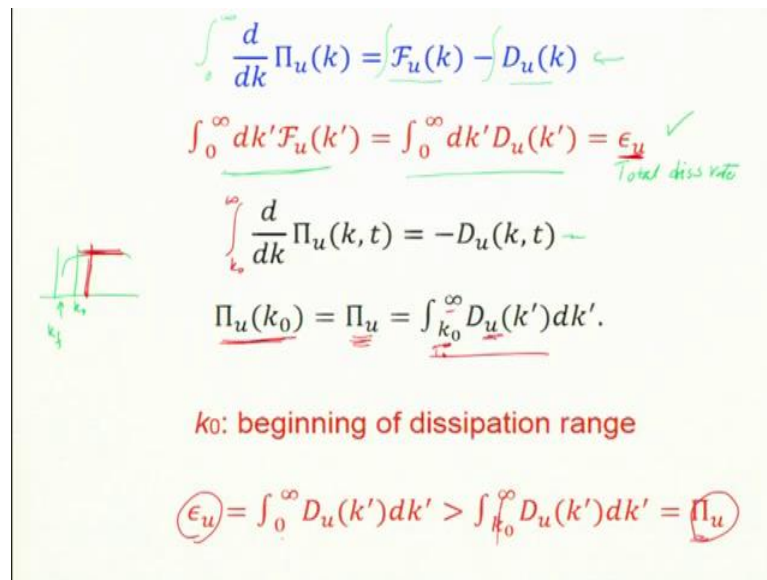 ∫₀^∞ d/dk Π_u(k) = ∫ℱ_u(k) − ∫D_u(k) ←
∫₀^∞ dk′ℱ_u(k′) = ∫₀^∞ dk′D_u(k′) = ϵ_u ✓
Total diss rate
∫_{k₀}^∞ d/dk Π_u(k, t) = −D_u(k, t) –
k_f k₀
Π_u(k₀) = Π_u = ∫_{k₀}^∞ D_u(k′)dk′.
k₀: beginning of dissipation range
ϵ_u = ∫₀^∞ D_u(k′)dk′ > ∫_{k₀}^∞ D_u(k′)dk′ = Π_u